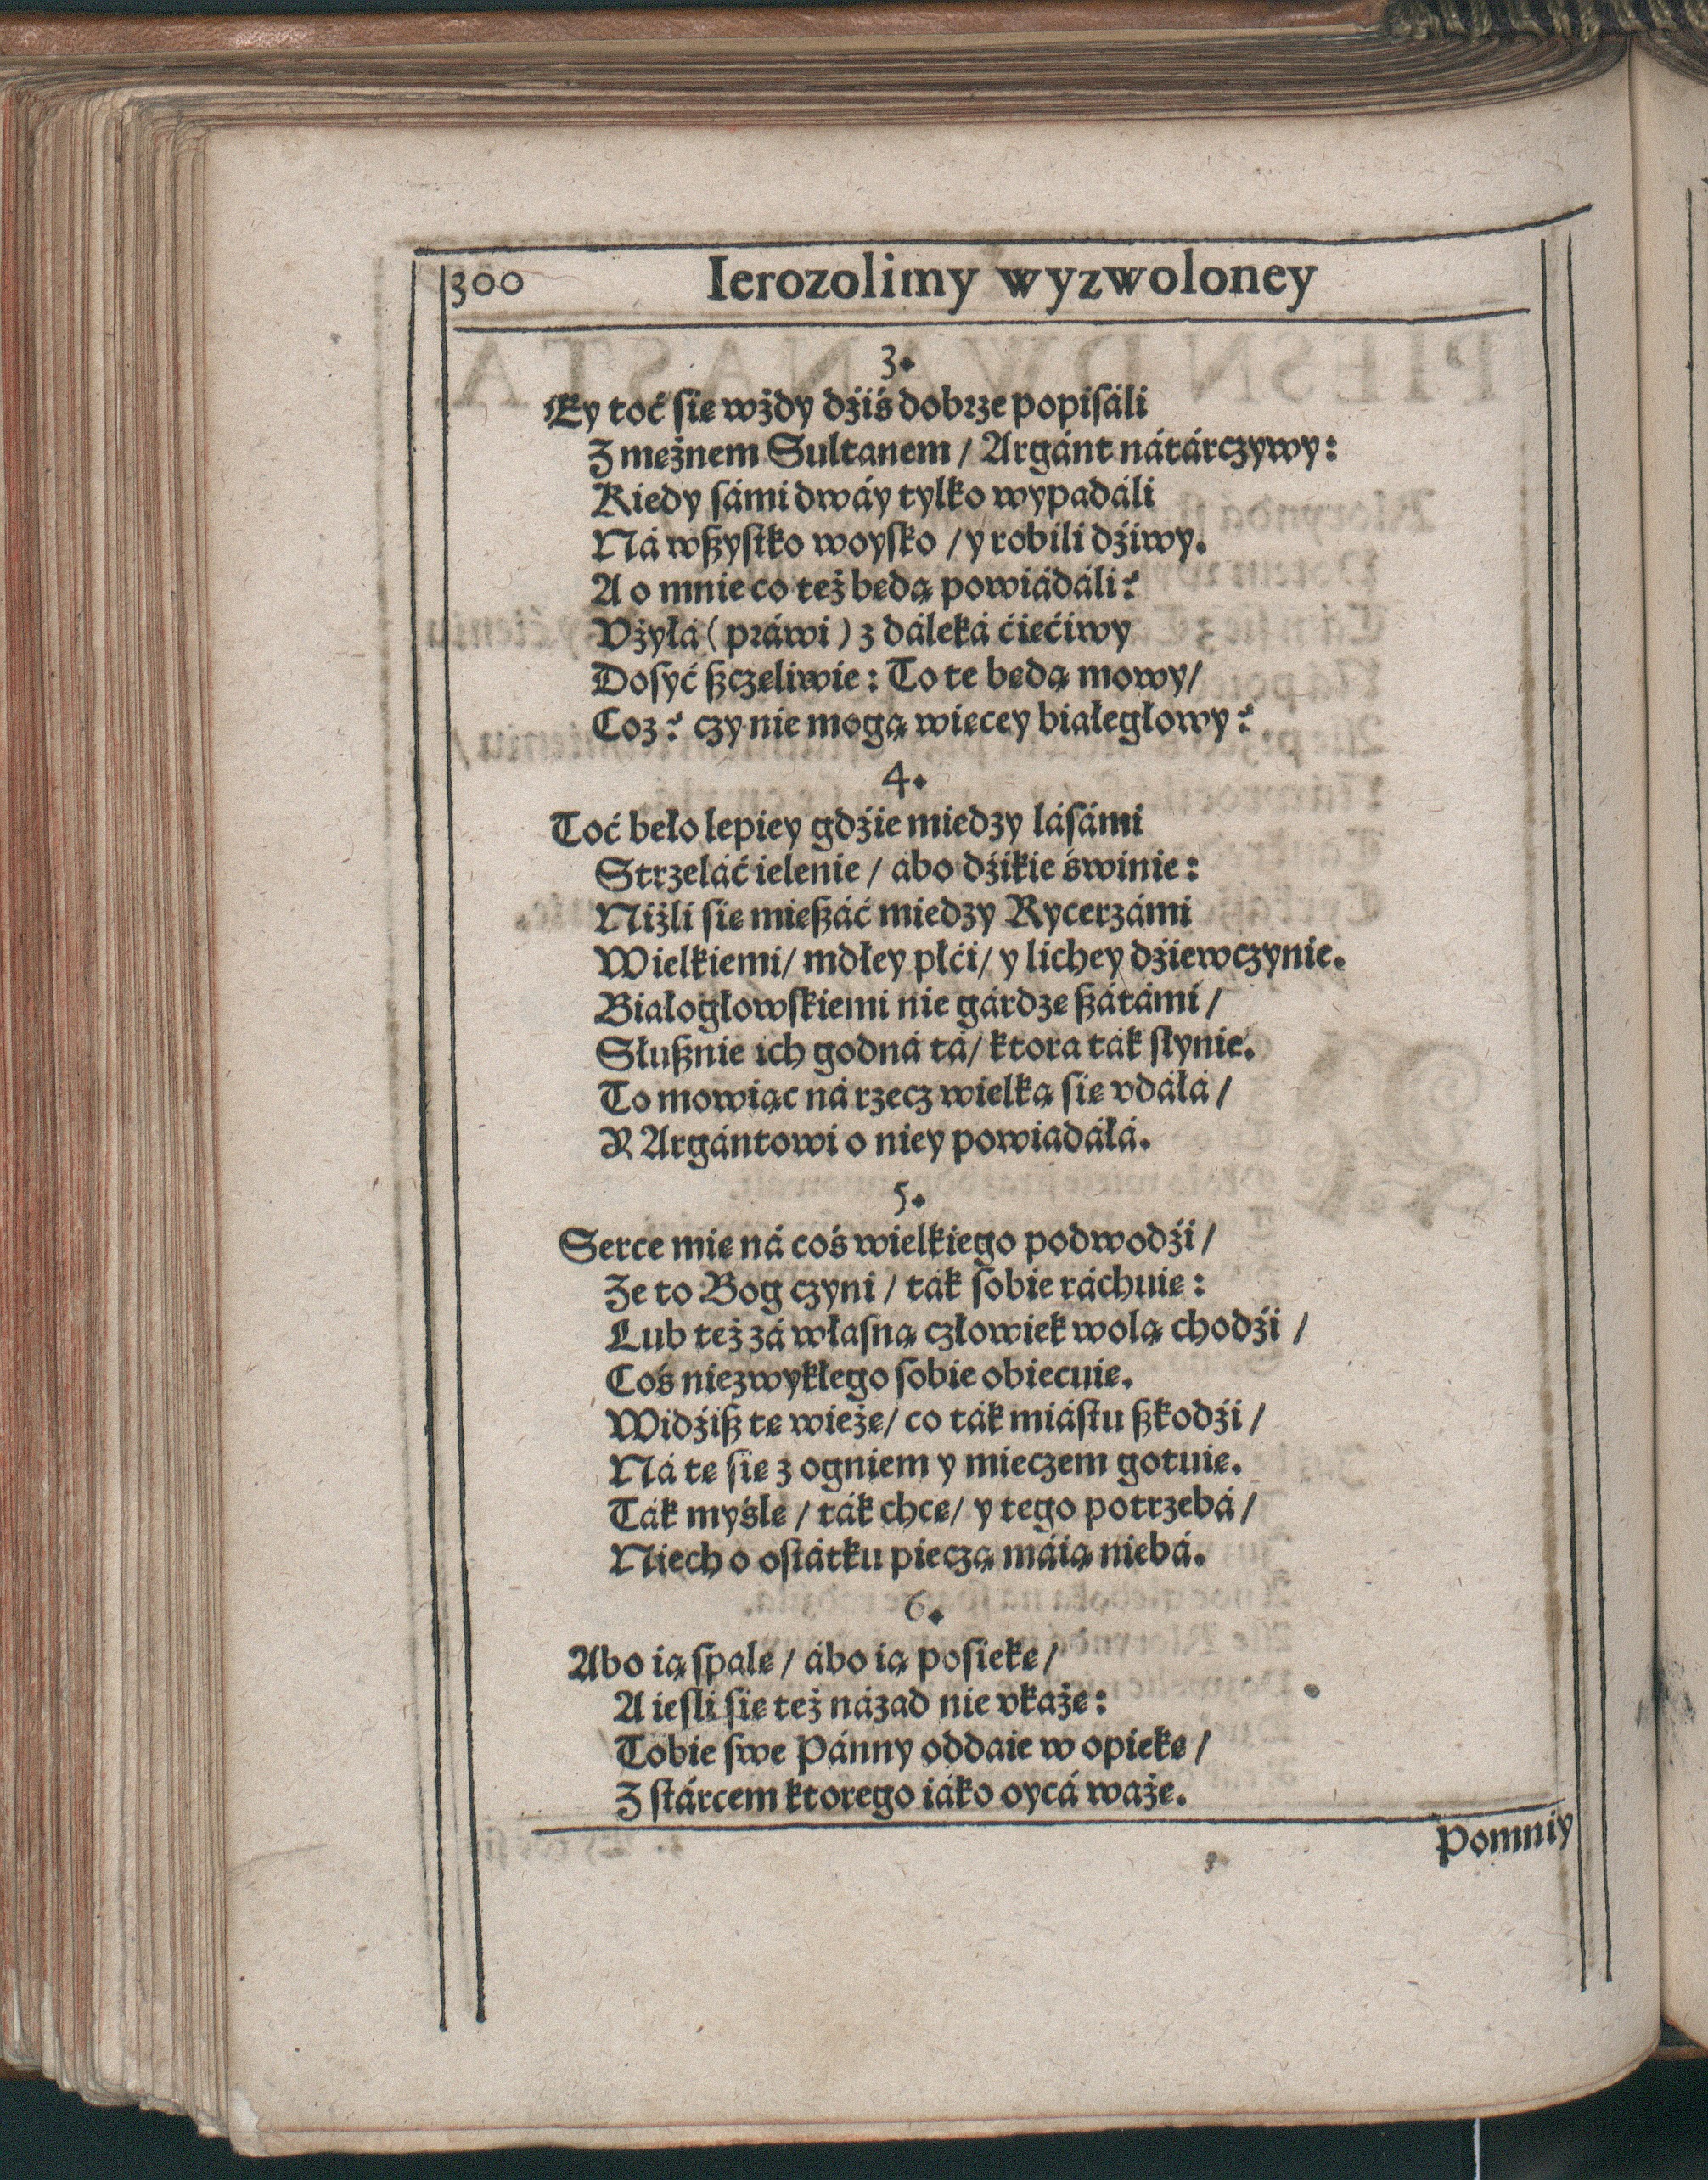 300 Ierozolimy wyzwoloney
3.
Ey toć ſię wżdy dźiś dobrze popiſáli
Z mężnem Sultanem / Argánt nátárczywy:
Kiedy ſámi dwáy tylko wypadáli
Ná wßyſtko woyſko / y robili dźiwy.
A o mnie co też będą powiádáli?
Vżyłá (práwi) z dáleká ćięćiwy
Doſyć ßczęliwie: To te będą mowy/
Coz? czy nie mogą więcey białegłowy?
4.
Toć beło lepiey gdźie miedzy láſámi
Strzeláć ielenie / ábo dźikie świnie:
Niżli ſię mießáć miedzy Rycerzámi
Wielkiemi/ mdłey płći/ y lichey dźiewczynie.
Białogłowſkiemi nie gárdzę ßátámi /
Słußnie ich godná tá/ ktora ták ſłynie.
To mowiąc ná rzecz wielką ſię vdáłá /
Y Argántowi o niey powiadáłá.
5.
Serce mię ná coś wielkiego podwodźi /
Że to Bog czyni / ták ſobie ráchuię:
Lub też zá właſną człowiek wolą chodźi /
Coś niezwykłego ſobie obiecuię.
Widźiß tę wieżę/ co ták miáſtu ßkodźi /
Ná tę ſię z ogniem y mieczem gotuię.
Ták myślę / ták chcę/ y tego potrzebá /
Niech o oſtátku pieczą máią niebá.
6.
Abo ią ſpalę / ábo ią poſiekę /
A ieſli ſię też názad nie vkażę:
Tobie ſwe Pánny oddaię w opiekę /
Z ſtárcem ktorego iáko oycá ważę.
Pomniy